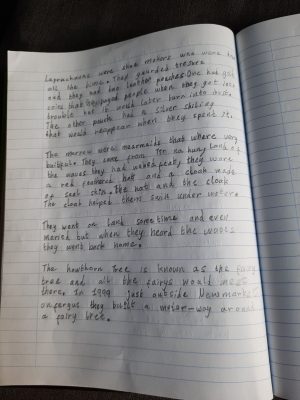 Leprachauns were shoe makers who were
all the time. They guarded tresure
and they had two leather pouches. One had gold
coins that they payed people when they got into
trouble but it would later turn into dust.
The other pouch had a silver shiling
that would reappear when they spent it.
The morrow were mearmaids that where very
buitiful. They came from Tir na nuay Land of
the waves they had webed feat, they ware
a red feathered hat and a cloak made
of seal skin. The hat and the cloak
The cloat helped them swim under watere.
They went on land sometime and even
maried but when they heard the waves
they went back home.
The hawthorn Tree is known as the fairy
tree and all the fairys would meet
there. In 1999 just outside Newmarket
onfergus they built a motor-way around
a fairy tree.